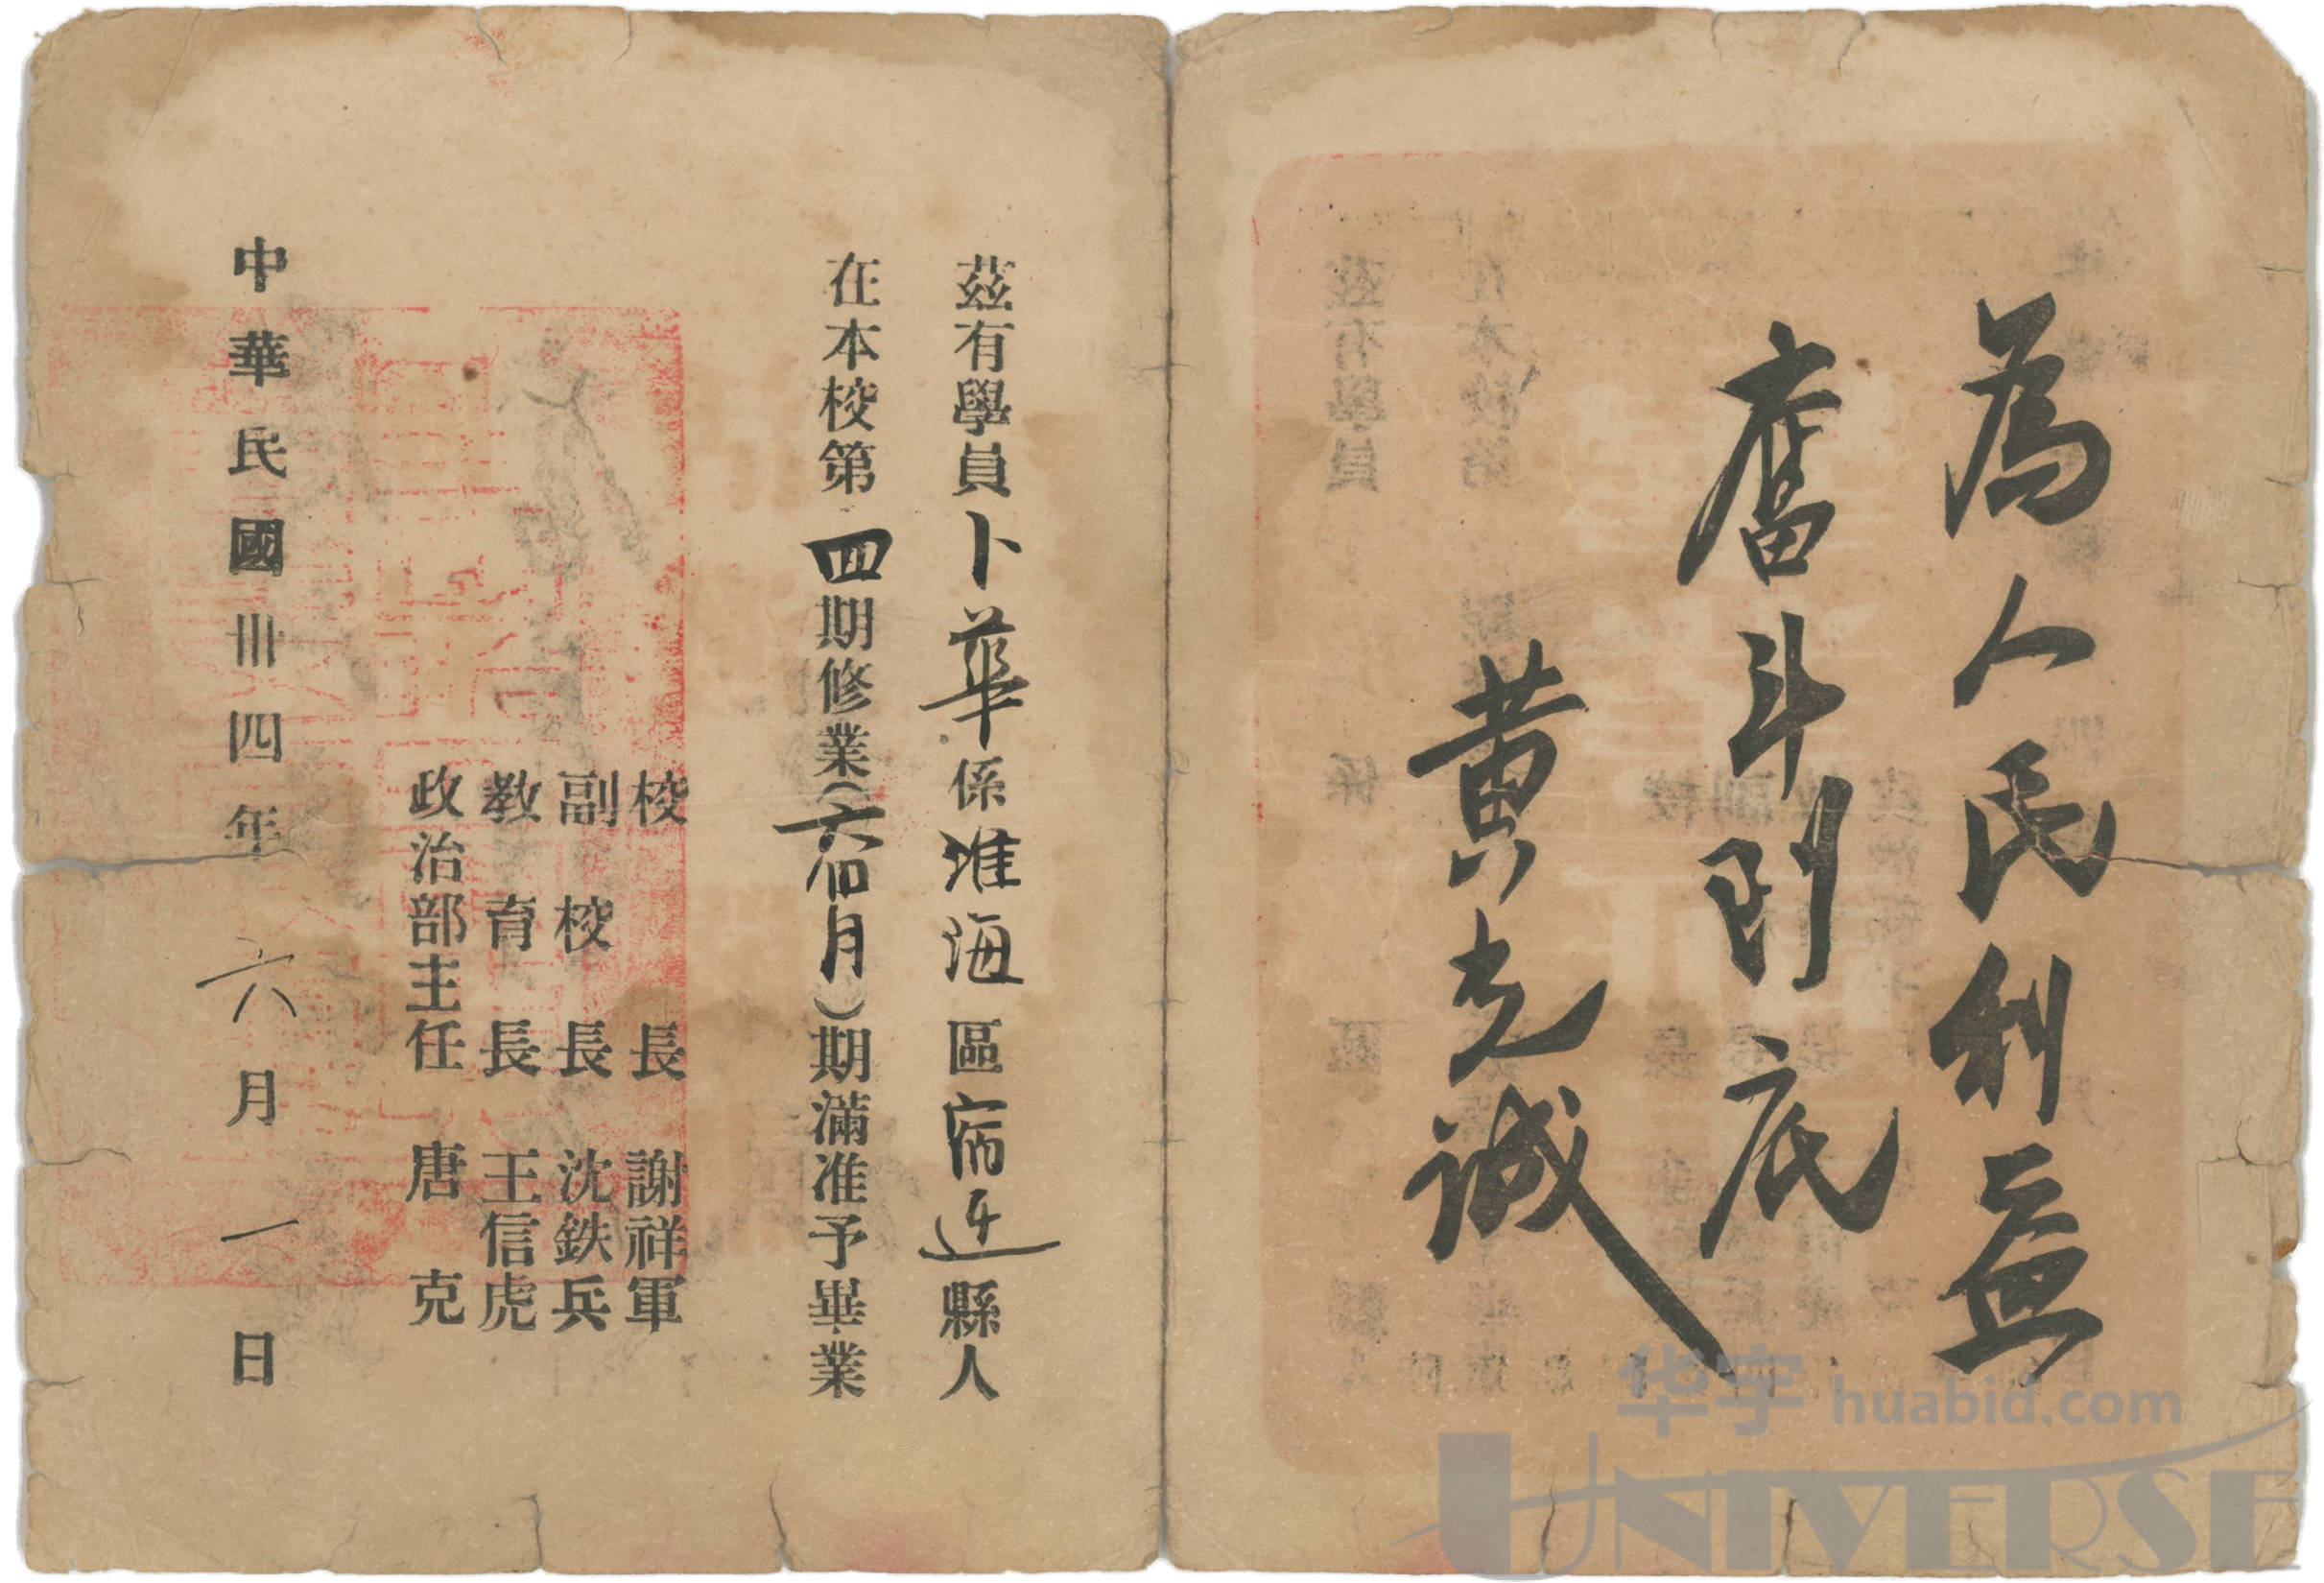 為人民利益
奮斗到底
黄克诚
茲有學員卜華係淮海區宿迁縣人
在本校第四期修業(六個月)期滿准予畢業
校長 謝祥軍
副校長 沈鉄兵
教育長 王信虎
政治部主任 唐克
中華民國卅四年六月一日
华宇 huabid.com
UNIVERSE